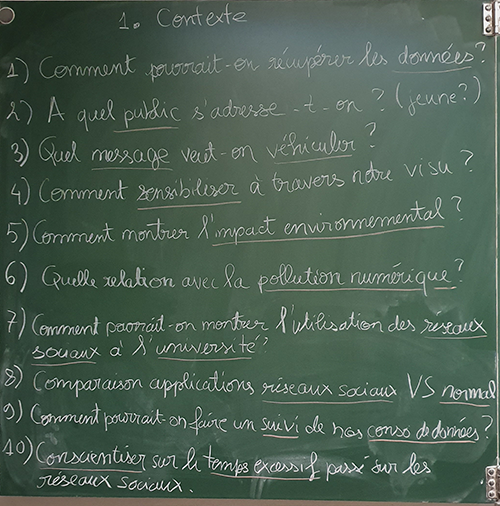 1. Contexte
1) Comment pourrait-on récupérer les données?
2) A quel public s'adresse-t-on? (jeune?)
3) Quel message veut-on véhiculer?
4) Comment sensibiliser à travers notre visu?
5) Comment montrer l'impact environnemental?
6) Quelle relation avec la pollution numérique?
7) Comment pourrait-on montrer l'utilisation des reseaux
sociaux à l'université?
8) Comparaison applications réseaux sociaux VS normal
9) Comment pourrait-on faire un suivi de nos conso de données?
10) Conscientiser sur le temps excessif passé sur les
réseaux sociaux.